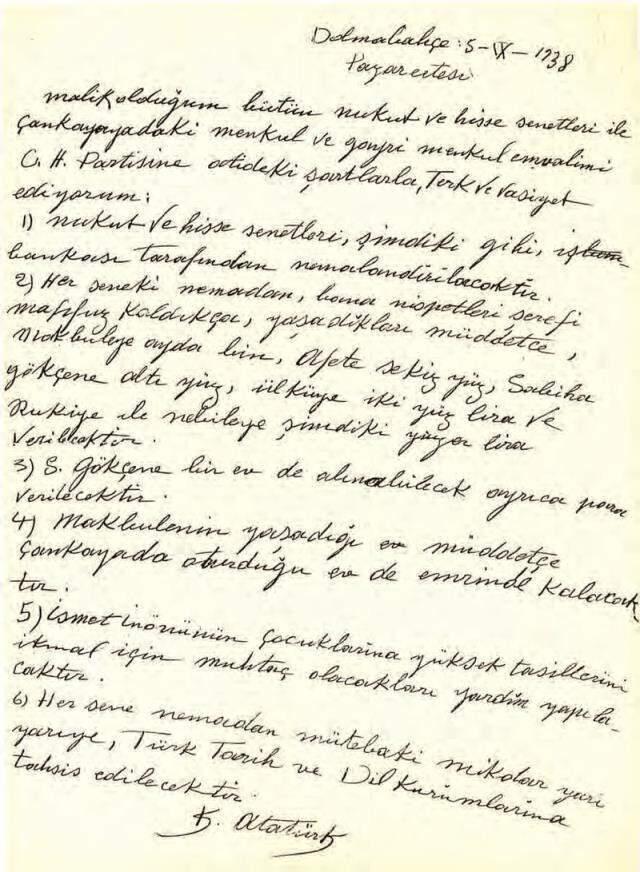 Dolmabahçe: 5-IX-1938
Pazarertesi
malik olduğum bütün nukut ve hisse senetleri ile
Çankayayadaki menkul ve gayri menkul emvalimi
C. H. Partisine atideki şartlarla, Terk ve vasiyet
ediyorum:
1) nukut ve hisse senetleri, şimdiki gibi, iş
bankası tarafından nemalandırılacaktır.
2) Her seneki nemadan, bana nispetleri şerefi
mahfuz kaldıkça, yaşadıkları müddetçe,
Makbuleye ayda bin, Afete sekiz yüz, Sabiha
gökçene altı yüz, ülküye iki yüz lira ve
Rukiye ile nebileye şimdiki yüzer lira
verilecektir.
3) S. Gökçene bir ev de alınabilecek ayrıca para
verilecektir.
4) Makbulenin yaşadığı ev müddetçe
Çankayada oturduğu ev de emrinde kalacak
tır.
5) ismet inönünün çocuklarına yüksek tasillerini
ikmal için muhtaç olacakları yardım yapıla-
caktır.
6) Her sene nemadan mütebaki mikdar yarı
yarıye, Türk Tarih ve Dil Kurumlarına
tahsis edilecektir.
K. Atatürk